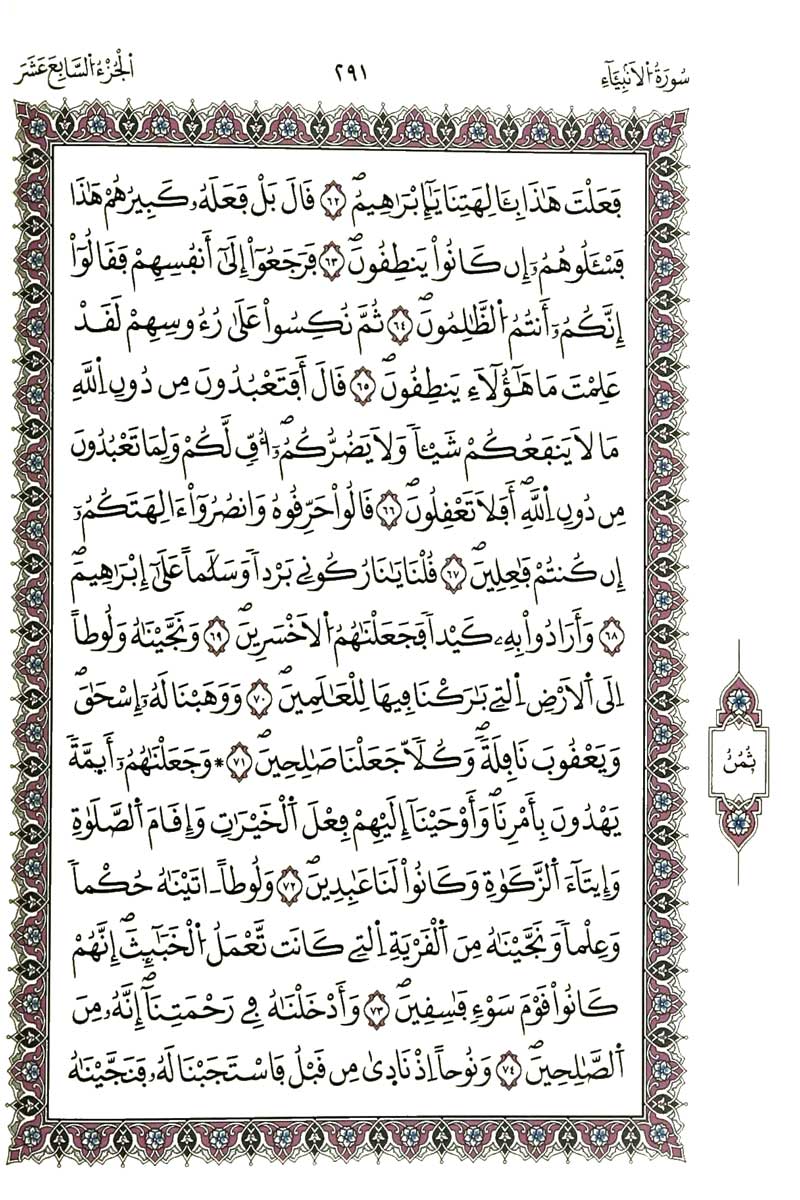 سُورَةُ الْأَنْبِيَاءِ
٢٩١
الْجُزْءُ السَّابِعَ عَشَرَ
فَعَلْتَ هَٰذَا بِـَٔالِهَتِنَا يَٰٓإِبْرَٰهِيمُ ۖ ٦٢ قَالَ بَلْ فَعَلَهُۥ كَبِيرُهُمْ هَٰذَا
فَسْـَٔلُوهُمُۥٓ إِن كَانُوا۟ يَنطِقُونَ ۖ ٦٣ فَرَجَعُوٓا۟ إِلَىٰٓ أَنفُسِهِمْ فَقَالُوٓا۟
إِنَّكُمُۥٓ أَنتُمُ الظَّٰلِمُونَ ۖ ٦٤ ثُمَّ نُكِسُوا۟ عَلَىٰ رُءُوسِهِمْ لَقَدْ
عَلِمْتَ مَا هَٰٓؤُلَآءِ يَنطِقُونَ ۖ ٦٥ قَالَ أَفَتَعْبُدُونَ مِن دُونِ اِللَّهِ
مَا لَا يَنفَعُكُمْ شَيْـًٔا وَلَا يَضُرُّكُمُۥٓ ۖ أُفٍّ لَّكُمْ وَلِمَا تَعْبُدُونَ
مِن دُونِ اِللَّهِ ۖ أَفَلَا تَعْقِلُونَ ۖ ٦٦ قَالُوا۟ حَرِّقُوهُ وَانصُرُوٓا۟ ءَالِهَتَكُمُۥٓ
إِن كُنتُمْ فَٰعِلِينَ ۖ ٦٧ قُلْنَا يَٰنَارُ كُونِے بَرْداً وَسَلَٰماً عَلَىٰٓ إِبْرَٰهِيمَ ۖ
٦٨ وَأَرَادُوا۟ بِهِۦ كَيْداً فَجَعَلْنَٰهُمُ الْأَخْسَرِينَ ۖ ٦٩ وَنَجَّيْنَٰهُ وَلُوطاً
اِلَى الْأَرْضِ اِلتِے بَٰرَكْنَا فِيهَا لِلْعَٰلَمِينَ ۖ ٧٠ وَوَهَبْنَا لَهُۥٓ إِسْحَٰقَ ۖ
وَيَعْقُوبَ نَافِلَةً ۖ وَكُلّاً جَعَلْنَا صَٰلِحِينَ ۖ ٧١ * وَجَعَلْنَٰهُمُۥٓ أَيِمَّةً
يَهْدُونَ بِأَمْرِنَا ۖ وَأَوْحَيْنَآ إِلَيْهِمْ فِعْلَ اَلْخَيْرَٰتِ وَإِقَامَ اَلصَّلَوٰةِ
وَإِيتَآءَ اَلزَّكَوٰةِ وَكَانُوا۟ لَنَا عَٰبِدِينَ ۖ ٧٢ وَلُوطاً اٰتَيْنَٰهُ حُكْماً
وَعِلْماً وَنَجَّيْنَٰهُ مِنَ اَلْقَرْيَةِ اِلتِے كَانَت تَّعْمَلُ اُلْخَبَٰٓئِثَ ۖ إِنَّهُمْ
كَانُوا۟ قَوْمَ سَوْءٍ فَٰسِقِينَ ۖ ٧٣ وَأَدْخَلْنَٰهُ فِے رَحْمَتِنَآ ۖ إِنَّهُۥ مِنَ
اَلصَّٰلِحِينَ ۖ ٧٤ وَنُوحاً اِذْ نَادَىٰ مِن قَبْلُ فَاسْتَجَبْنَا لَهُۥ فَنَجَّيْنَٰهُ
ثُمُنُ